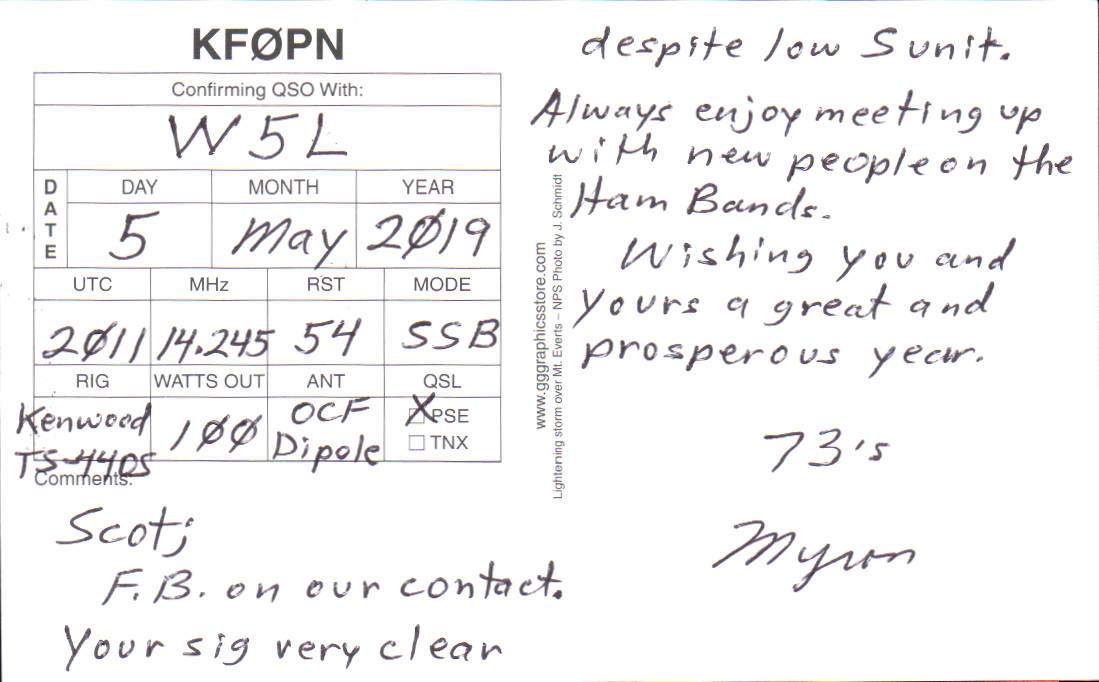 KFØPN
Confirming QSO With:
W5L
DATE
DAY MONTH YEAR
5 May 2Ø19
UTC MHz RST MODE
2Ø11 14.245 54 SSB
RIG WATTS OUT ANT QSL
Kenwood
TS-440S
1ØØ
OCF
Dipole
X PSE
☐ TNX
Comments:
Scot;
F.B. on our contact.
Your sig very clear
www.gggraphicsstore.com
Lightening storm over Mt. Everts – NPS Photo by J. Schmidt
despite low S unit.
Always enjoy meeting up
with new people on the
Ham Bands.
Wishing you and
yours a great and
prosperous year.
73's
Myron